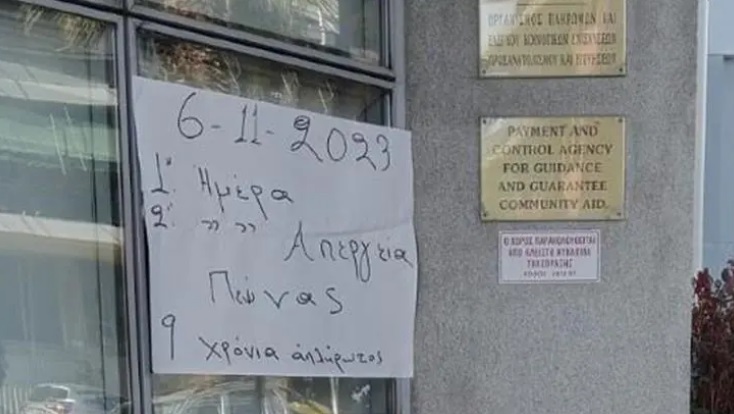 6-11-2023
1η Ημέρα
2η " "
Απεργεία
Πείνας
9 χρόνια απλήρωτος
ΟΡΓΑΝΙΣΜΟΣ ΠΛΗΡΩΜΩΝ ΚΑΙ
ΕΛΕΓΧΟΥ ΚΟΙΝΟΤΙΚΩΝ ΕΝΙΣΧΥΣΕΩΝ
ΠΡΟΣΑΝΑΤΟΛΙΣΜΟΥ ΚΑΙ ΕΓΓΥΗΣΕΩΝ
PAYMENT AND
CONTROL AGENCY
FOR GUIDANCE
AND GUARANTEE
COMMUNITY AID.
Ο ΧΩΡΟΣ ΠΑΡΑΚΟΛΟΥΘΕΙΤΑΙ
ΑΠΟ ΚΛΕΙΣΤΟ ΚΥΚΛΩΜΑ
ΤΗΛΕΟΡΑΣΗΣ